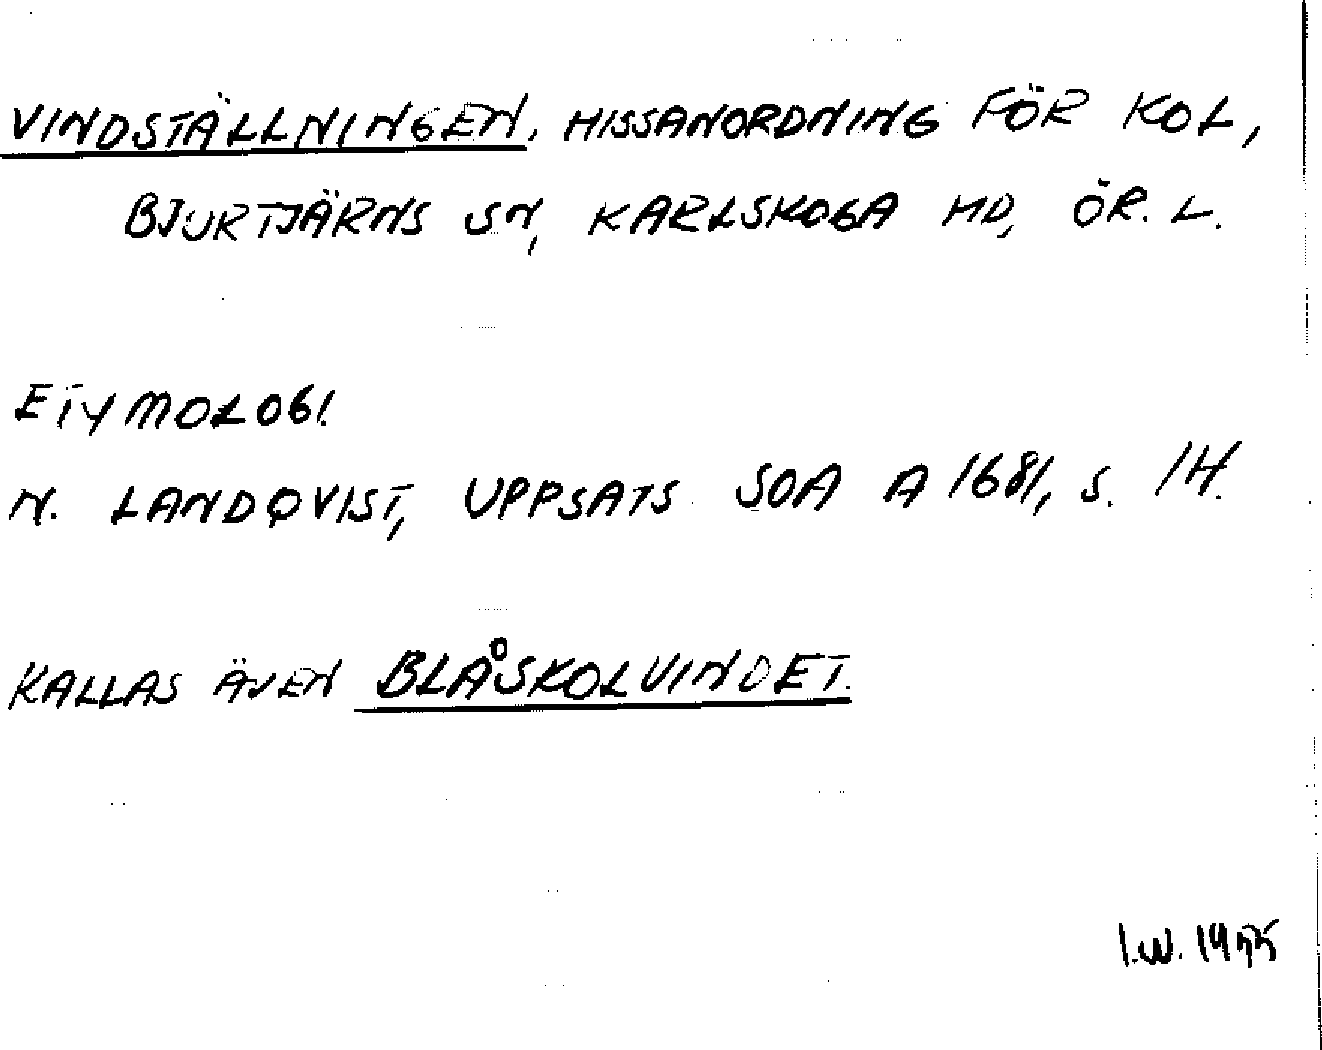 VINDSTÄLLNINGEN, HISSANORDNING FÖR KOL,
BJURTJÄRNS SN, KARLSKOGA HD, ÖR. L.
ETYMOLOGI.
N. LANDQVIST, UPPSATS SOA A 1681, S. 14.
KALLAS ÄVEN BLÅSKOLVINDET.
I.W.